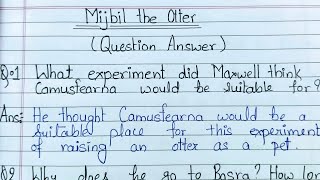 Mijbil the Otter
(Question Answer)
Q.1 What experiment did Maxwell think
Camusfearna would be suitable for?
Ans: He thought Camusfearna would be a
suitable place for this experiment
of raising an otter as a pet.
Q2 Why does he go to Basra? How long